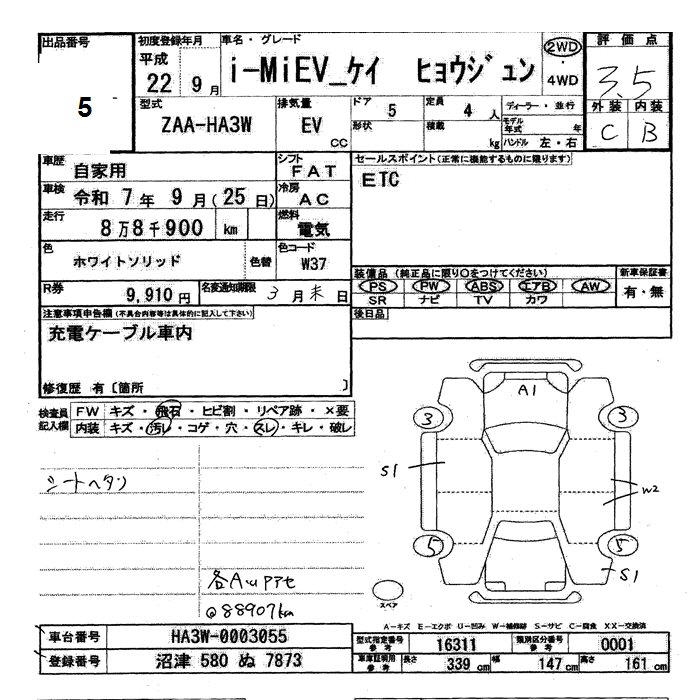 出品番号
5
初度登録年月
平成
22 9月
車名・グレード
i-MiEV_ケイ ヒョウジュン
2WD
・
4WD
評価点
3.5
外装 内装
C B
型式
ZAA-HA3W
排気量
EV
CC
ドア 5
形状
定員 4 人
積載 kg
ディーラー・並行
モデル年式 年
ハンドル 左・右
車歴
自家用
シフト
FAT
車検
令和 7年 9月(25日)
冷房
AC
走行
8万8千900 km
燃料
電気
色
ホワイトソリッド
色替
色コード
W37
R券
9,910円
名変通知期限
3月末日
セールスポイント(正常に機能するものに限ります)
ETC
装備品 (純正品に限り○をつけてください)
PS PW ABS エアB AW
SR ナビ TV カワ
新車保証書
有・無
後日品
注意事項申告欄(不具合内容等は具体的に記入して下さい)
充電ケーブル車内
修復歴 有〔箇所 〕
検査員
記入欄
FW キズ・飛石・ヒビ割・リペア跡・×要
内装 キズ・汚レ・コゲ・穴・スレ・キレ・破レ
シートヘタリ
@88907km
A1
3 3
S1
W2
5 5
S1
スペア
A−キズ E−エクボ U−凹み W−補修跡 S−サビ C−腐食 XX−交換済
車台番号 HA3W-0003055
登録番号 沼津 580 ぬ 7873
型式指定番号
参考
16311
類別区分番号
参考
0001
車庫証明用
参考
長さ 339 cm 幅 147 cm 高さ 161 cm